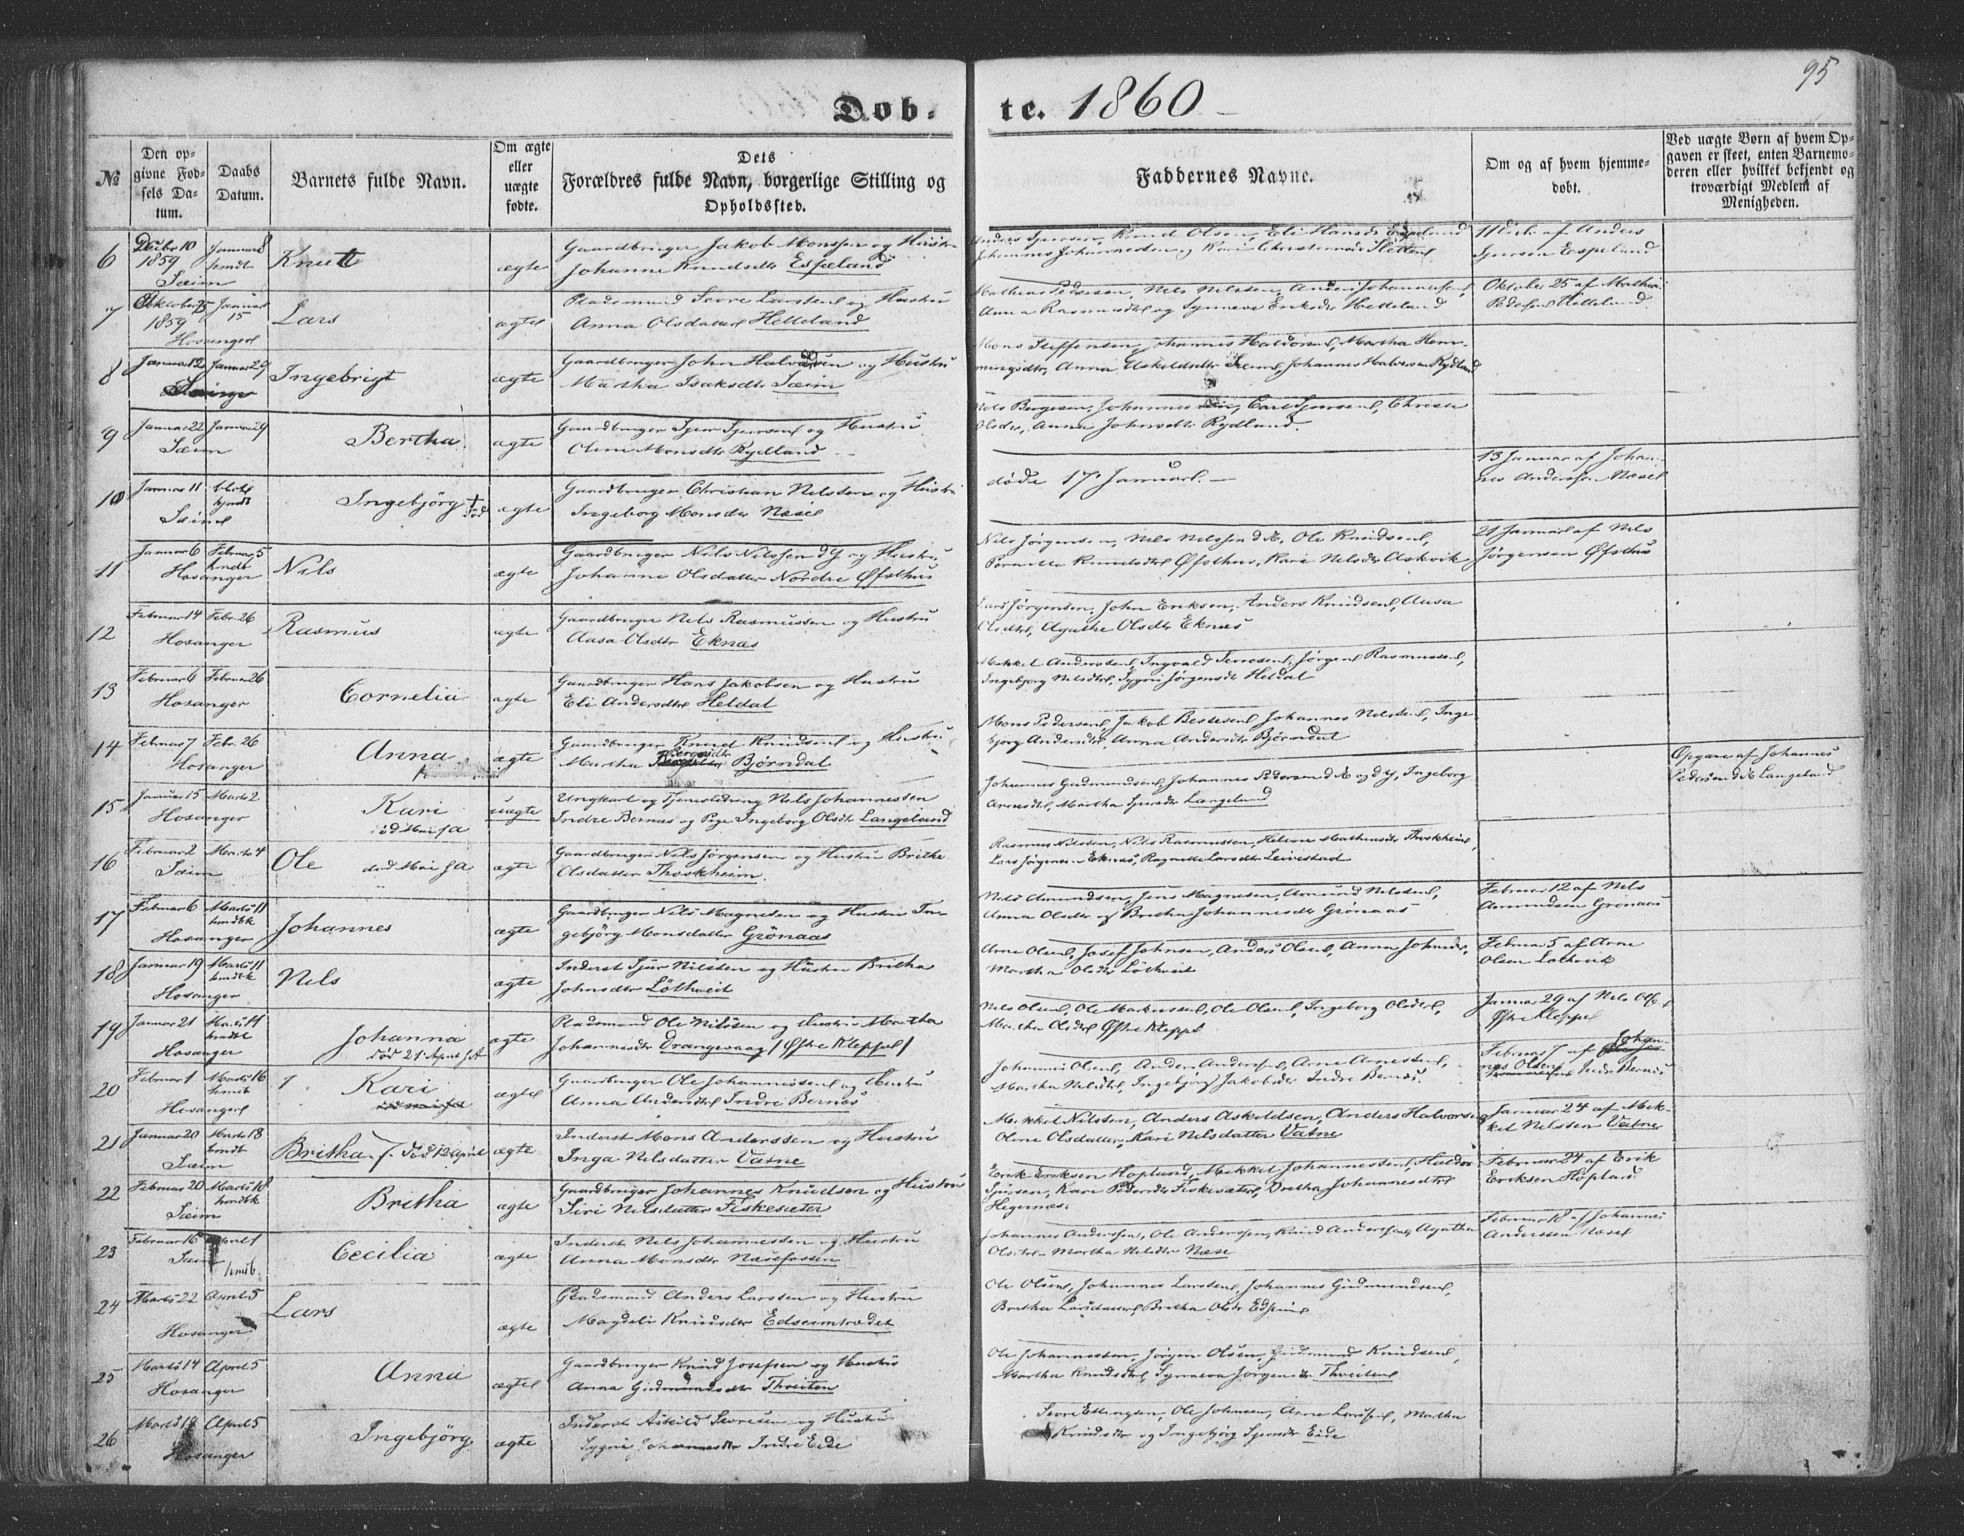 95
Døb- te. 1860
№
Den opgivne Fødsels Datum.
Daabs Datum.
Barnets fulde Navn.
Om ægte eller uægte fødte.
Dets Forældres fulde Navn, borgerlige Stilling og Opholdssted.
Faddernes Navne.
Om og af hvem hjemmedøbt.
Ved uægte Børn af hvem Opgaven er skeet, enten Barnemoderen eller hvilket bekjendt og troværdigt Medlem af Menigheden.
6 Decbr 10 1859 Januar 8 Sæim Knut ægte
Gaardbruger Jakob Monssen og Hustru
Johanne Knudsdtr Espeland
Knud Olsen, Eli Hansdtr Espeland
Johannes Johannessen og Kari Christensdtr
af Anders
Espeland
7 Oktober 15 1859 Januar 15 Hosanger Lars ægte
Pladsmand Sevre Larssen og Hustru
Anna Olsdatter Helleland
Mathias Pedersen, Nils Nilssen, Anders Johannessen,
Anna Rasmusdtr og Synneve Eriksdtr Helleland
Oktober 25 af Mathias
Pedersen Helleland
8 Januar 12 Januar 29 Ingebrigt ægte
Gaardbruger John Halvorsen og Hustru
Martha Isaksdtr Sæim
Mons Steffensen, Johannes Haldorsen, Martha Hem-
mingsdtr, Anna Askeldsdtr Sæim, Johannes Halvorsen Rydland
9 Januar 22 Januar 29 Sæim Bertha ægte
Gaardbruger Sjur Sjursen og Hustru
Oline Monsdtr Rydland
Nils Børgesen, Johannes
Olsdtr, Anna Johnsdtr Rydland.
10 Januar 11 Sæim Ingebjörg † død ægte
Gaardbruger Christian Nilssen og Hustru
Ingeborg Monsdtr Næse
døde 17 Januar.
13 Januar af Johan-
nes Anderssen Næse
11 Januar 6 Februar 5 Hosanger Nils ægte
Gaardbruger Nils Nilssen d Y og Hustru
Johanne Olsdatter Nordre Øfsthus
Nils Jörgensen, Nils Nilssen d Æ, Ole Knudsen,
Pernille Knudsdtr Øfsthus, Kari Nilsdtr Askvik
21 Januar af Nils
Jørgensen Øfsthus
12 Februar 14 Febr. 26 Hosanger Rasmus ægte
Gaardbruger Nels Rasmussen og Hustru
Aasa Olsdtr Eknæs
Lars Jörgensen, John Eriksen, Anders Knudsen, Aasa
Olsdtr, Agathe Olsdtr Eknæs
13 Februar 6 Februar 26 Hosanger Cornelia ægte
Gaardbruger Hans Jakobsen og Hustru
Eli Andersdtr Heldal
Mikkel Anderssen, Ingvald Sevresen, Jörgen Rasmussen,
Ingebjorg Nilsdtr, Sygni Jörgensdtr Heldal
14 Februar 7 Febr. 26 Hosanger Anna ægte
Gaardbruger Knud Knudsen og Hustru
Martha Bjørndal
Mons Pedersen, Jakob Johannes Nilssen, Inge-
bjorg Andersdtr, Anna Andersdtr Bjørndal
15 Januar 15 Marts 2 Hosanger Kari uægte
Ungkarl og Nils Johannessen
Indre Bernæs og Pige Ingeborg Olsdtr Langeland
Johannes Gudmundsen, Johannes Pedersen d Æ og d Y, Ingeborg
Arnesdtr, Martha Sjursdtr Langeland
Opgave af Johannes
Pedersen d Æ Langeland
16 Februar 2 Marts 4 Sæim Ole død Mai ægte
Gaardbruger Nils Jörgensen og Hustru Brithe
Olsdatter Thoskheim.
Rasmus Nilssen, Nils Rasmussen, Helene Mathiasdtr Thoskheim,
Lars Jörgensen Eknæs, Ragnilde Larsdtr Leivestad
17 Februar 6 Marts 11 Hosanger Johannes ægte
Gaardbruger Nils Magnesen og Hustru In-
gebjörg Monsdatter Grönaas
Nils Amundsen, Jens Magnesen, Amund Nilssen,
Anna Olsdtr og Britha Johannesdtr Grønaas
Februar 12 af Nils
Amundsen Grønaas
18 Januar 19 Marts 11 Hosanger Nels ægte
Inderst Sjur Nilssen og Hustru Britha
Johnsdtr Löthveit
Arne Olsen, Josef Johnsen, Anders Olsen, Anna Johnsdtr,
Martha Olsdtr Löthveit
Februar 5 af Arne
Olsen Løthveit
19 Januar 21 Marts 11 Hosanger Johanna død 21 April ægte
Pladsmand Ole Nilssen og Hustru Martha
Johannesdtr Orangevaag / Øfre Kleppe /
Nils Olsen, Ole Markussen, Ole Olsen, Ingeborg Olsdtr,
Martha Olsdtr Øfre Kleppe
Januar 29 af Nils Olsen
Øfre Kleppe
20 Februar 1 Marts 16 Hosanger Kari ægte
Gaardbruger Ole Johannessen og Hustru
Anna Andersdtr Indre Bernæs
Johannes Olsen, Anders Andersen, Arne Arnessen,
Martha Nilsdtr, Ingebjorg Jakobsdtr Indre Bernæs.
Februar 7 af Johan-
nes Olsen Indre Bernæs
21 Januar 20 Marts 18 Sæim Britha. død 12 April ægte
Inderst Mons Anderssen og Hustru
Inga Nelsdatter Vatne
Mekkel Nilssen, Anders Askeldsen, Anders Halvorsen,
Oline Olsdatter, Kari Nelsdatter Vatne
Januar 24 af Mek-
kel Nelssen Vatne
22 Februar 20 Marts 18 Sæim Britha ægte
Gaardbruger Johannes Knudsen og Hustru
Siri Nelsdatter Fiskesæter
Erik Eriksen Hopland, Mekkel Johannessen, Haldor
Sjursen, Kari Pedersdtr Fiskesæter, Britha Johannesdtr
Hegernæs.
Februar 24 af Erik
Eriksen Hopland
23 Februar 16 April 1 Sæim Cecilia ægte
Inderst Nels Johannessen og Hustru
Anna Monsdtr Næsefossen
Johannes Andersen, Ole Andersen, Knud Andersen, Agatha
Olsdtr, Martha Nelsdtr Næse
Februar 18 af Johannes
Anderssen Næse
24 Marts 22 April 5 Hosanger Lars ægte
Pladsmand Anders Larssen og Hustru
Magdeli Knudsdtr Edseimtrædet
Ole Olsen, Johannes Larssen, Johannes Gudmundsen,
Britha Larsdatter, Britha Olsdtr Edseim
25 Marts 14 April 5 Hosanger Anna ægte
Gaardbruger Knud Josefsen og Hustru
Anna Gudmundsdtr Thveiten
Ole Johannessen, Jørgen Olsen, Gudmund Knudsen,
Martha Knudsdtr, Synneva Jørgensdtr Thveiten
26 Marts 18 April 5 Hosanger Ingebjörg ægte
Inderst Askild Sevresen og Hustru
Sygni Johannesdtr Indre Eide
Sevre Ellingsen, Ole Johnsen, Arne Larssen, Martha
Knudsdtr og Ingebjorg Sjursdtr Eide